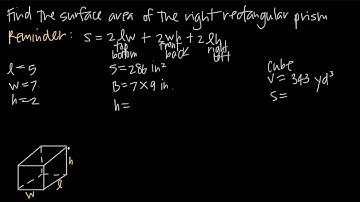 Find the surface area of the right rectangular prism
Reminder: S = 2lw + 2wh + 2lh
top bottom front back right left
l = 5
w = 7
h = 2
S = 286 in²
B = 7 × 9 in.
h =
cube
V = 343 yd³
S =
h
l
w